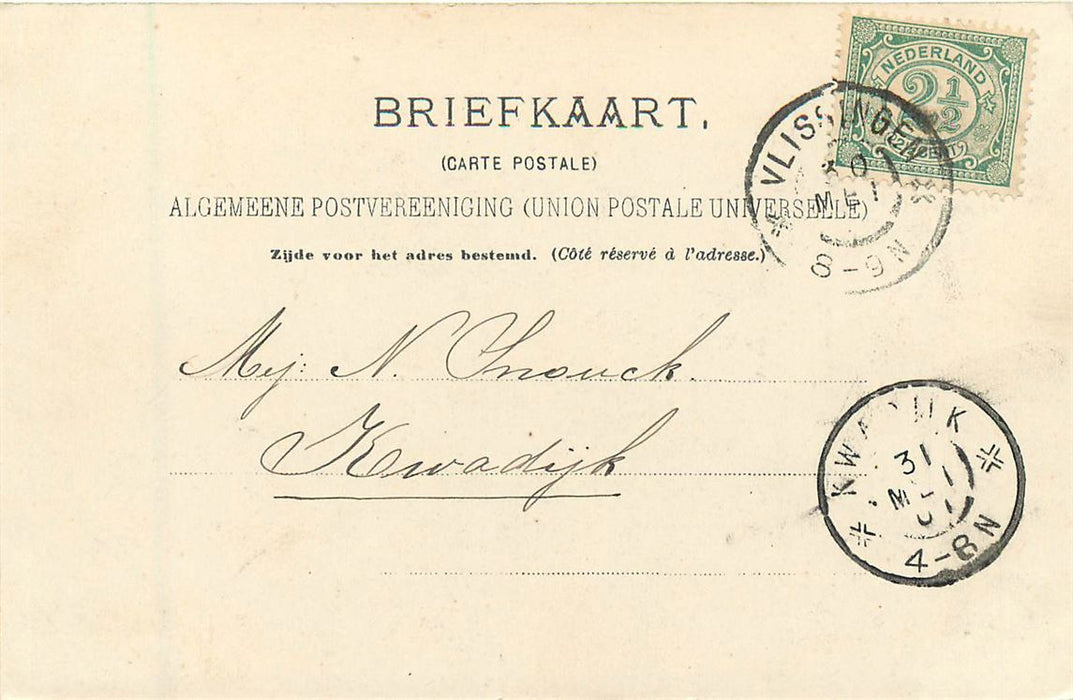 BRIEFKAART.
(CARTE POSTALE)
ALGEMEENE POSTVEREENIGING (UNION POSTALE UNIVERSELLE)
Zijde voor het adres bestemd. (Côté réservé à l'adresse.)
NEDERLAND
2½
VLISSINGEN
30
MEI
8-9N
Mej: N. Snouck.
Kwadijk
KWADIJK
31
MEI
4-8N